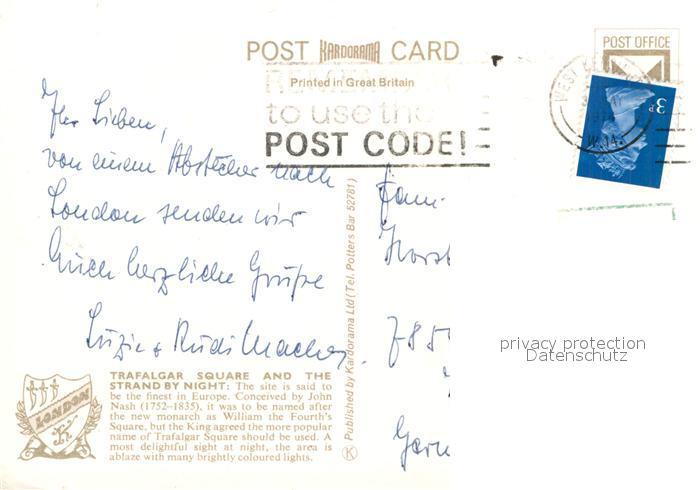 POST KARDORAMA CARD
Printed in Great Britain
REMEMBER
to use the
POST CODE!
POST OFFICE
WEST
1974
W.1
3P
Ihr Lieben,
von einem Abstecher nach
London senden wir
Euch herzliche Grüße
Luzie + Rudi
Fam.
Horst
Published by Kardorama Ltd (Tel. Potters Bar 52781)
K
privacy protection
Datenschutz
LONDON
TRAFALGAR SQUARE AND THE
STRAND BY NIGHT: The site is said to
be the finest in Europe. Conceived by John
Nash (1752–1835), it was to be named after
the new monarch as William the Fourth's
Square, but the King agreed the more popular
name of Trafalgar Square should be used. A
most delightful sight at night, the area is
ablaze with many brightly coloured lights.